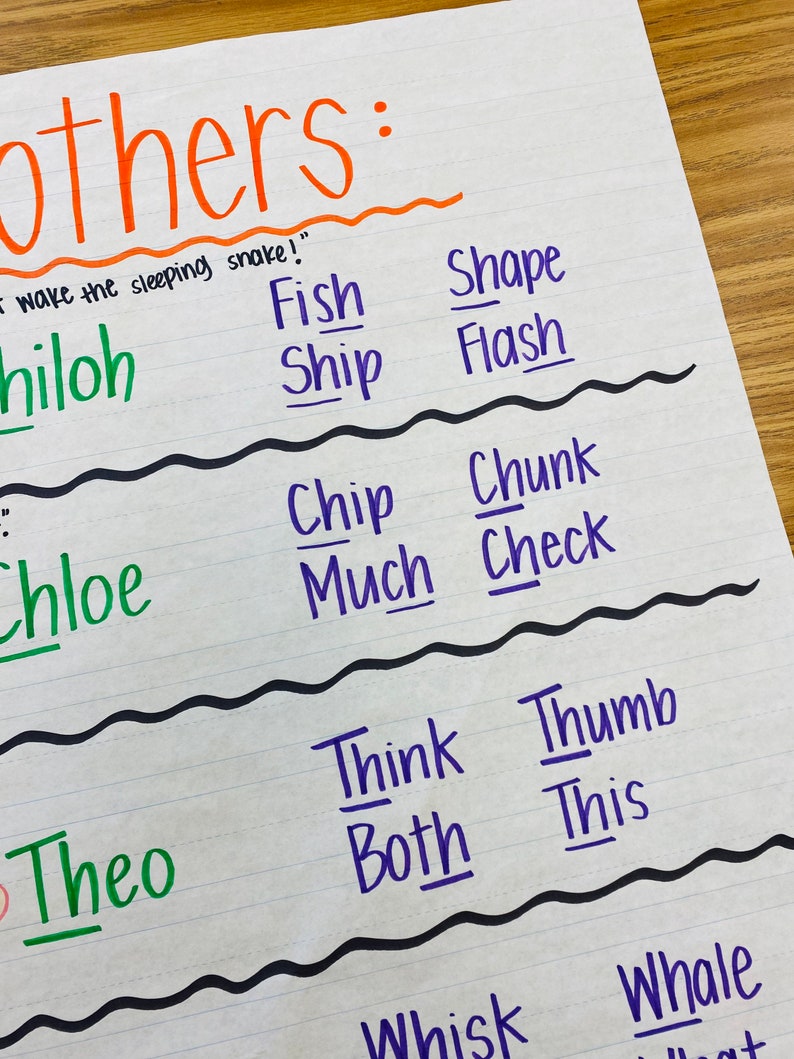 others:
wake the sleeping snake!"
Fish Shape
hiloh
Ship Flash
Chip Chunk
Chloe
Much Check
Think Thumb
Theo
Both This
Whale
Whisk
What